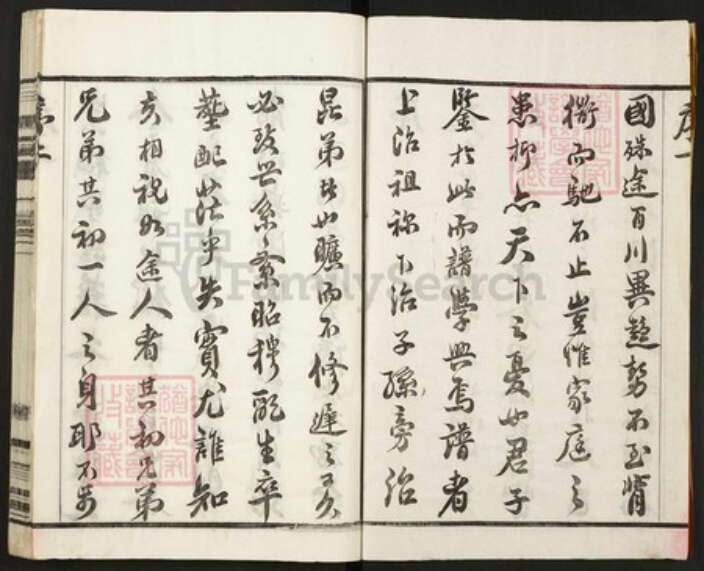 序一
國殊途百川異趨勢不至背
衝而馳不止豈惟家庭之
患抑亦天下之憂也君子
鑒於此而譜學興焉譜者
上治祖祢下治子孫旁治
昆弟者也曠而不修遲之又久
必致世系紊昭穆亂生卒
塋配茫乎失實尤誰知
夫相視如途人者其初兄弟
兄弟其初一人之身耶不
序二
FamilySearch